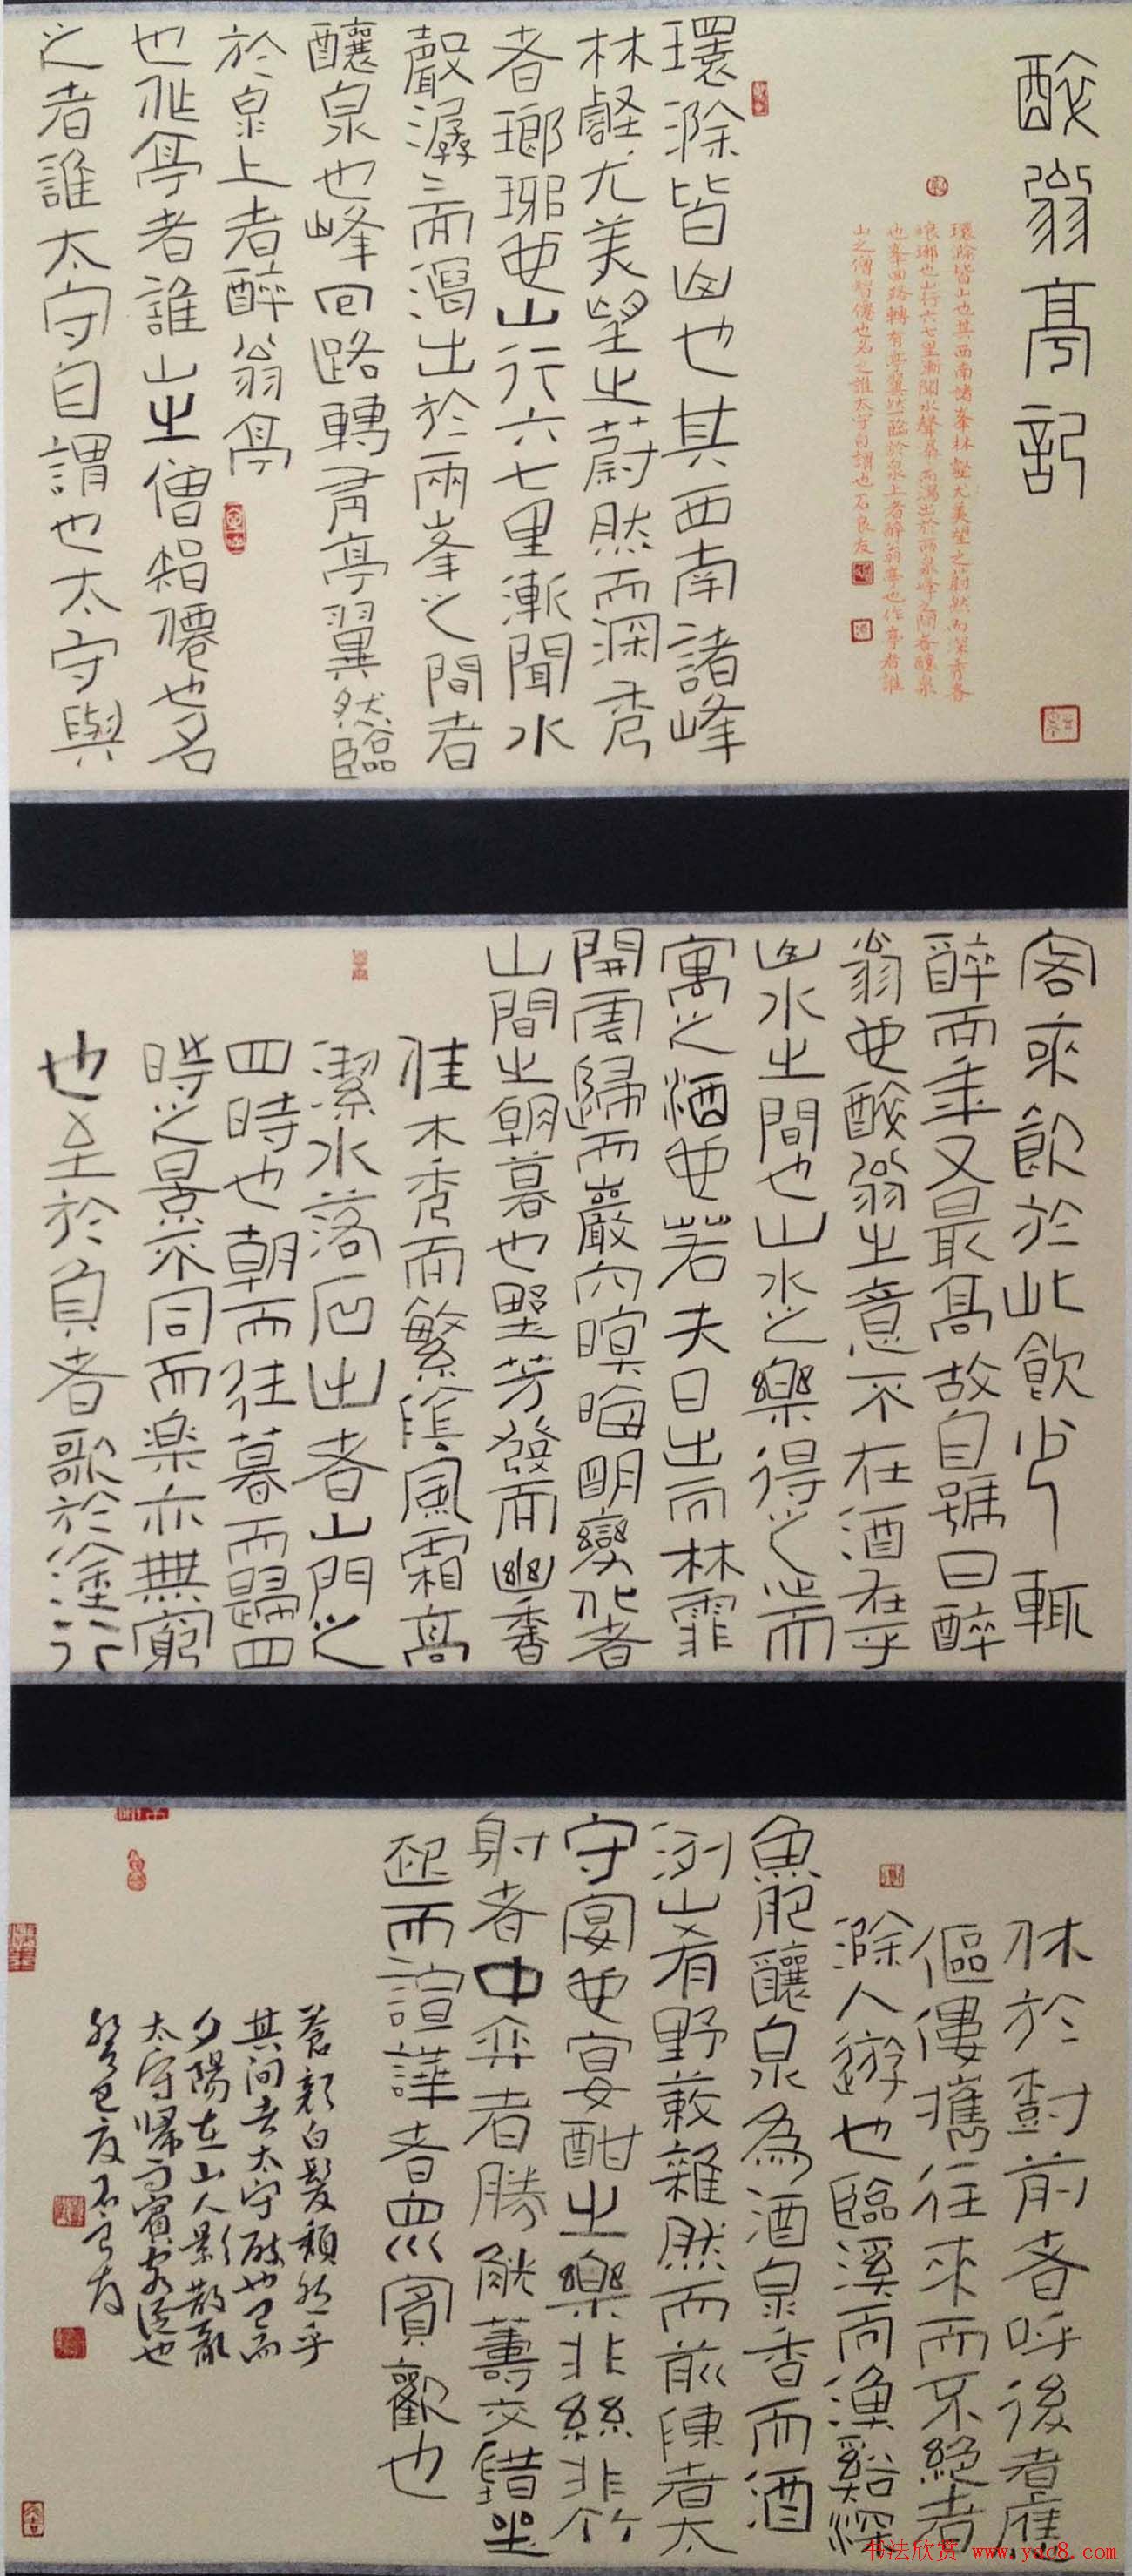 醉翁亭記
環滁皆山也其西南諸峯林壑尤美望之蔚然而深秀者
琅琊也山行六七里漸聞水聲暴而瀉出於兩泉峰之間者釀泉
也峯回路轉有亭翼然臨於泉上者醉翁亭也作亭者誰
山之僧智僊也名之誰太守自謂也石良友
環滁皆山也其西南諸峰
林壑尤美望之蔚然而深秀
者瑯琊也山行六七里漸聞水
聲潺〻而瀉出於兩峯之間者
釀泉也峰回路轉有亭翼然臨
於泉上者醉翁亭
也作亭者誰山之僧智僊也名
之者誰太守自謂也太守與
客來飲於此飲少輒
醉而年又最高故自號曰醉
翁也醉翁之意不在酒在乎
山水之間也山水之樂得之心而
寓之酒也若夫日出而林霏
開雲歸而巖穴暝晦明變化者
山間之朝暮也野芳發而幽香
佳木秀而繁陰風霜高
潔水落石出者山間之
四時也朝而往暮而歸四
時之景不同而樂亦無窮
也至於負者歌於塗行
休於樹前者呼後者應
傴僂攜往來而不絕者
滁人遊也臨溪而漁谿深
魚肥釀泉為酒泉香而酒
洌山肴野蔌雜然而前陳者太
守宴也宴酣之樂非絲非竹
射者中弈者勝觥籌交錯坐
起而諠譁者眾賓歡也
蒼顏白髮頹然乎
其間者太守醉也已而
夕陽在山人影散亂
太守歸而賓客從也
癸巳夏石良友
书法欣赏 www.yac8.com